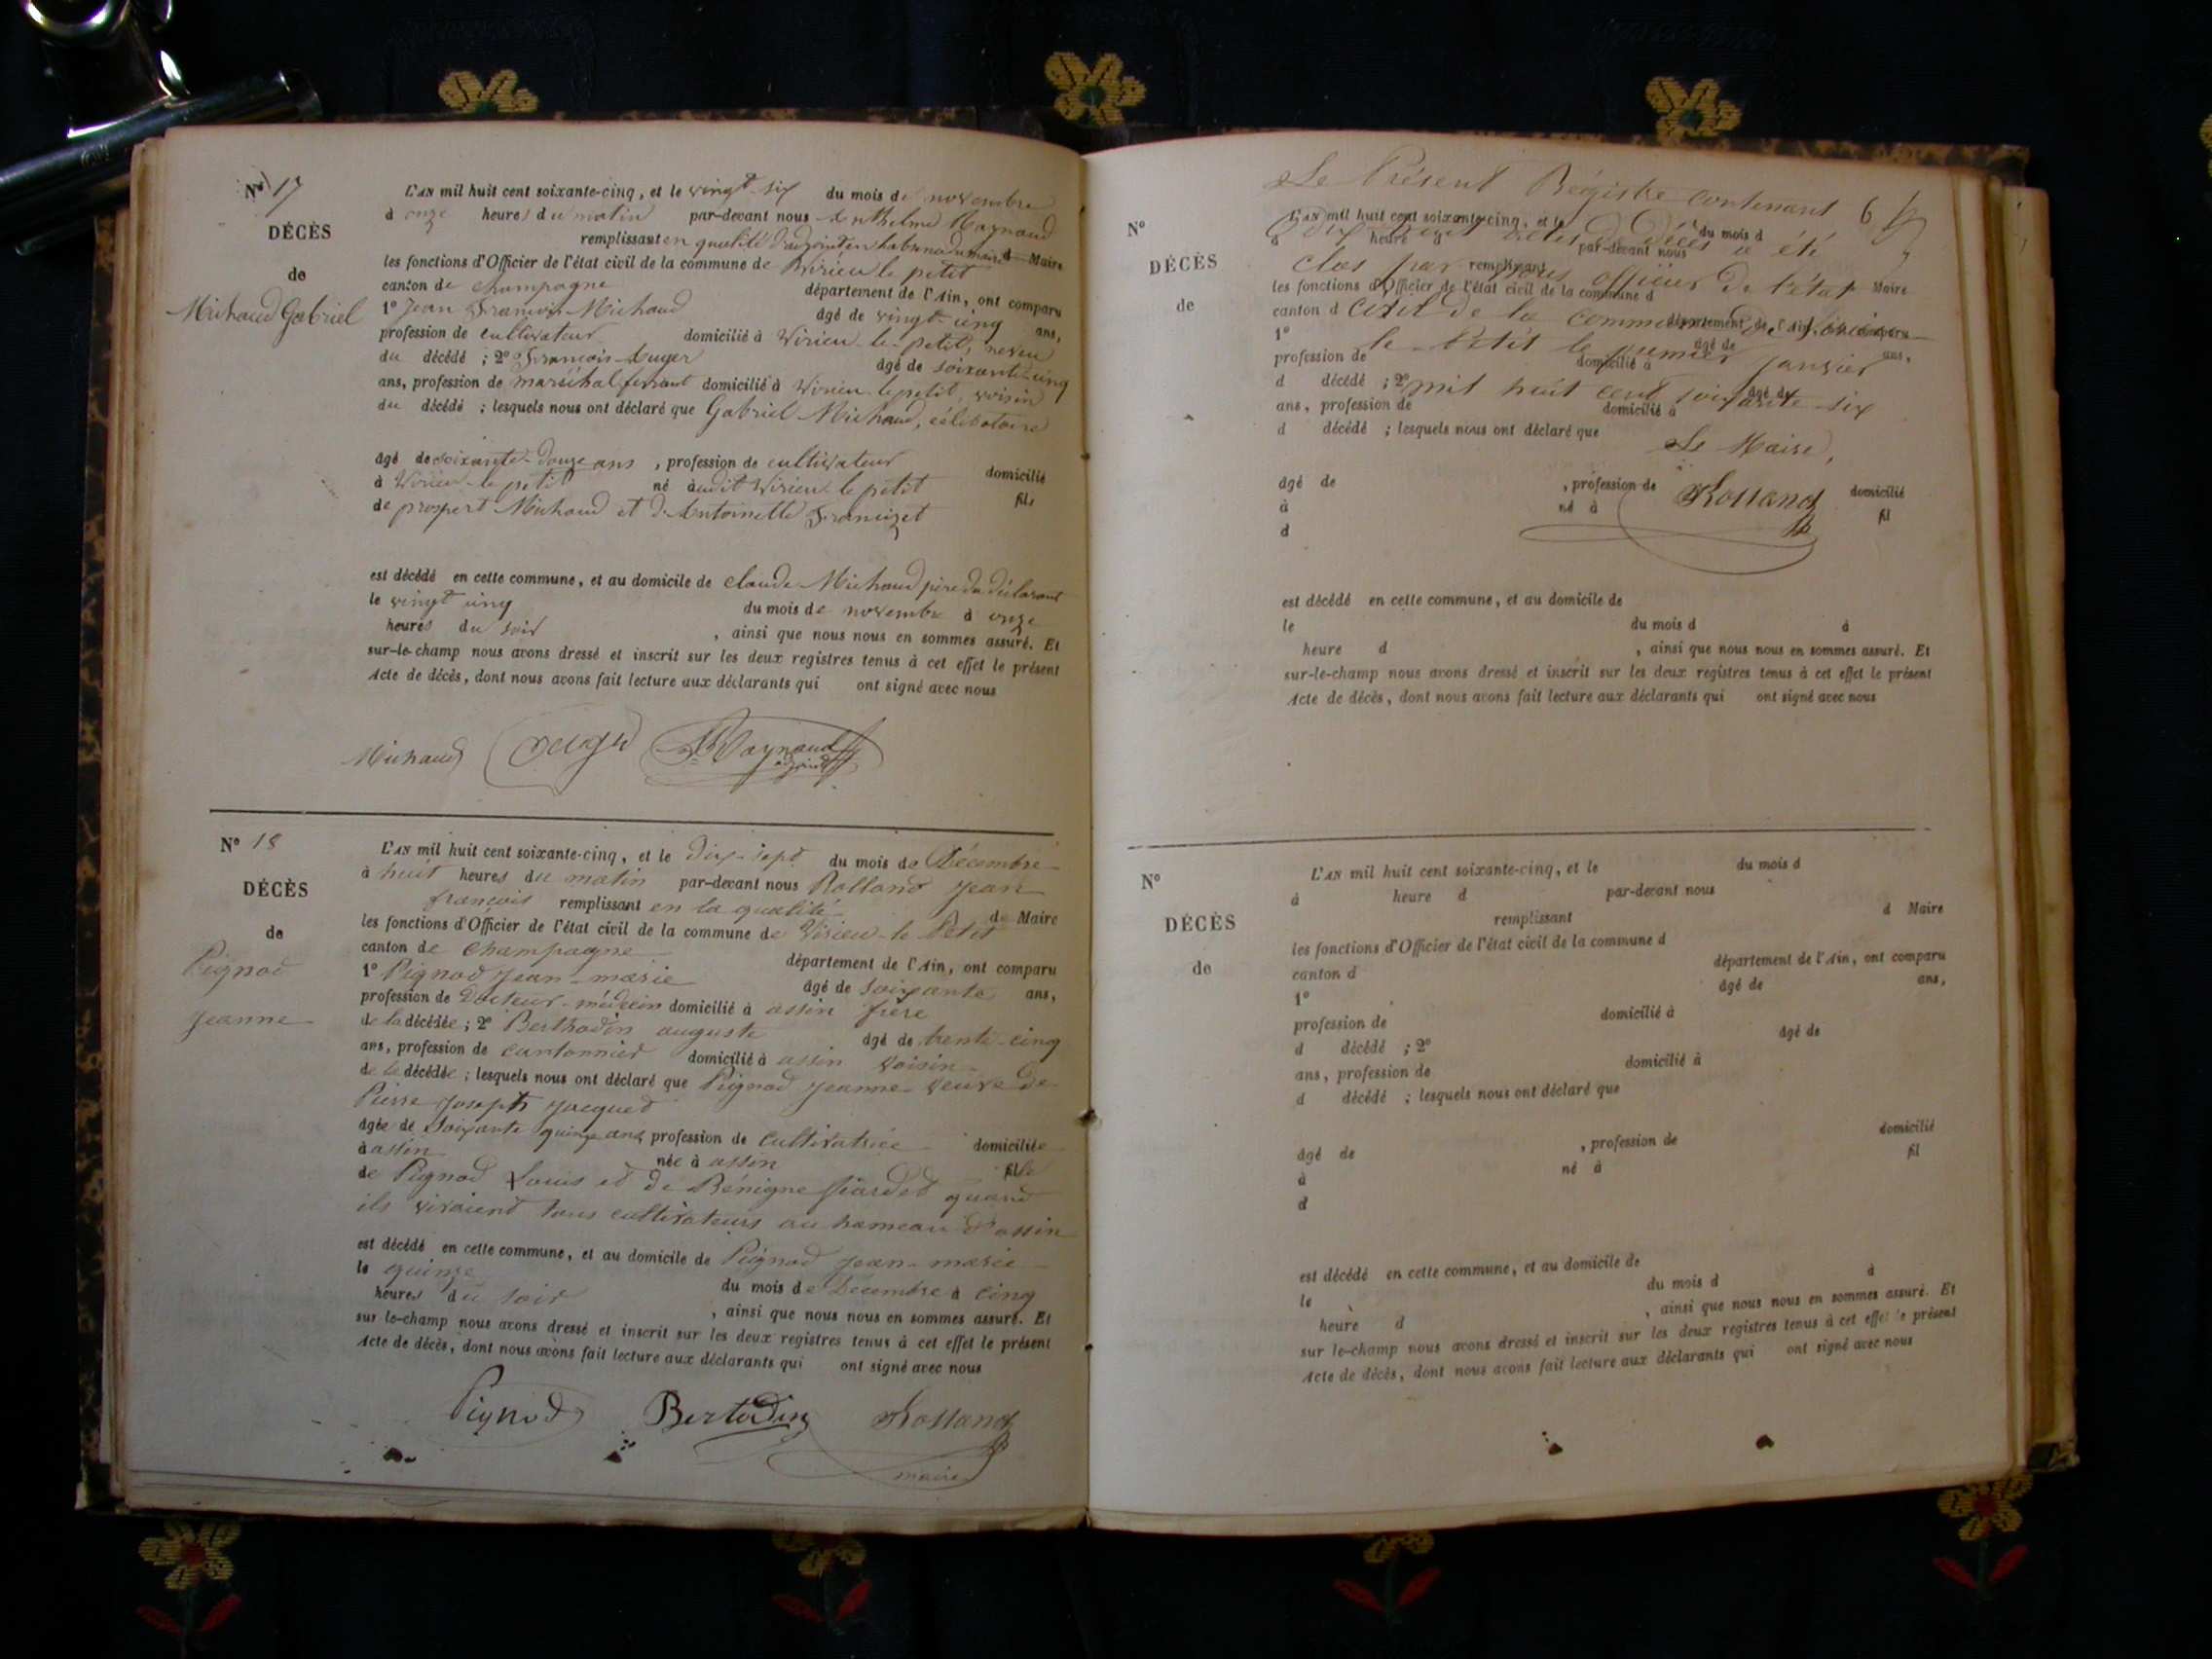 No 17
DÉCÈS
de
Michaud Gabriel
L'AN mil huit cent soixante-cinq, et le vingt-six du mois de novembre
à onze heures du matin par-devant nous Anthelme Raynaud
remplissant en qualité d'adjoint en du maire d Maire
les fonctions d'Officier de l'état civil de la commune de Virieu le petit
canton de champagne département de l'Ain, ont comparu
1º Jean François Michaud âgé de vingt-cinq ans,
profession de cultivateur domicilié à Virieu-le-petit, neveu
du décédé ; 2º François âgé de soixante-cinq
ans, profession de maréchal ferrant domicilié à Virieu le petit, voisin
du décédé ; lesquels nous ont déclaré que Gabriel Michaud, célibataire
âgé de soixante-douze ans , profession de cultivateur domicilié
à Virieu-le-petit né audit Virieu le petit fils
de prospert Michaud et d'Antoinette
est décédé en cette commune, et au domicile de claude Michaud père du déclarant
le vingt cinq du mois de novembre à onze
heures du soir , ainsi que nous nous en sommes assuré. Et
sur-le-champ nous avons dressé et inscrit sur les deux registres tenus à cet effet le présent
Acte de décès, dont nous avons fait lecture aux déclarants qui ont signé avec nous
Michaud Raynaud
adjoint
No 18
DÉCÈS
de
Pignod
Jeanne
L'AN mil huit cent soixante-cinq, et le dix-sept du mois de Décembre
à huit heures du matin par-devant nous Rolland jean
françois remplissant en la qualité de Maire
les fonctions d'Officier de l'état civil de la commune de Virieu-le Petit
canton de Champagne département de l'Ain, ont comparu
1º Pignod jean-marie âgé de soixante ans,
profession de Docteur-médecin domicilié à assin frère
de la décédée ; 2º Berthodin auguste âgé de trente-cinq
ans, profession de cantonnier domicilié à assin voisin
de la décédée ; lesquels nous ont déclaré que Pignod jeanne veuve de
Pierre joseph jacquet
âgée de soixante quinze ans profession de cultivatrice domiciliée
à assin née à assin fille
de Pignod Louis et de Bénigne quand
ils vivaient tous cultivateurs au hameau d'assin
est décédé en cette commune, et au domicile de Pignod jean-marie
le quinze du mois de Décembre à cinq
heures du soir , ainsi que nous nous en sommes assuré. Et
sur le-champ nous avons dressé et inscrit sur les deux registres tenus à cet effet le présent
Acte de décès, dont nous avons fait lecture aux déclarants qui ont signé avec nous
Pignod Bertodin Rolland
maire
Le Présent Régistre contenant
dix huit actes de Décès a été
clos par nous officier de l'état
civil de la commune de Virieu
le Petit le premier janvier
mil huit cent soixante-six
Le Maire,
Rolland
No
DÉCÈS
de
L'AN mil huit cent soixante-cinq, et le du mois d
à heure d par-devant nous
remplissant d Maire
les fonctions d'Officier de l'état civil de la commune d
canton d département de l'Ain, ont comparu
1º âgé de ans,
profession de domicilié à
d décédé ; 2º âgé de
ans, profession de domicilié à
d décédé ; lesquels nous ont déclaré que
âgé de , profession de domicilié
à né à fil
d
est décédé en cette commune, et au domicile de
le du mois d à
heure d , ainsi que nous nous en sommes assuré. Et
sur-le-champ nous avons dressé et inscrit sur les deux registres tenus à cet effet le présent
Acte de décès, dont nous avons fait lecture aux déclarants qui ont signé avec nous
No
DÉCÈS
de
L'AN mil huit cent soixante-cinq, et le du mois d
à heure d par-devant nous
remplissant d Maire
les fonctions d'Officier de l'état civil de la commune d
canton d département de l'Ain, ont comparu
1º âgé de ans,
profession de domicilié à
d décédé ; 2º âgé de
ans, profession de domicilié à
d décédé ; lesquels nous ont déclaré que
âgé de , profession de domicilié
à né à fil
d
est décédé en cette commune, et au domicile de
le du mois d à
heure d , ainsi que nous nous en sommes assuré. Et
sur le-champ nous avons dressé et inscrit sur les deux registres tenus à cet effet le présent
Acte de décès, dont nous avons fait lecture aux déclarants qui ont signé avec nous